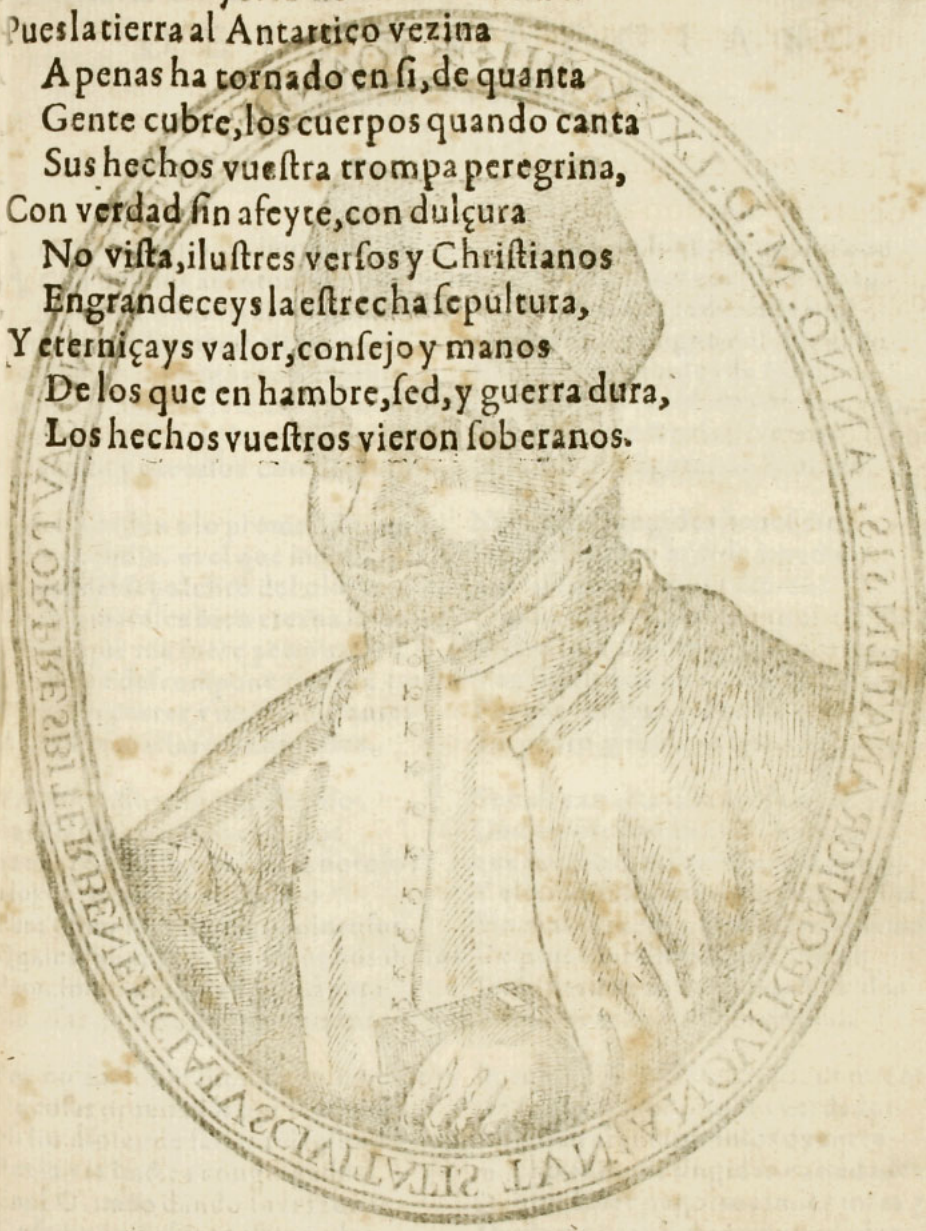 Pues la tierra al Antartico vezina
Apenas ha tornado en ſi, de quanta
Gente cubre, los cuerpos quando canta
Sus hechos vueſtra trompa peregrina,
Con verdad ſin afeyte, con dulçura
No viſta, iluſtres verſos y Chriſtianos
Engrandeceys la eſtrecha ſepultura,
Y eterniçays valor, conſejo y manos
De los que en hambre, ſed, y guerra dura,
Los hechos vueſtros vieron ſoberanos.